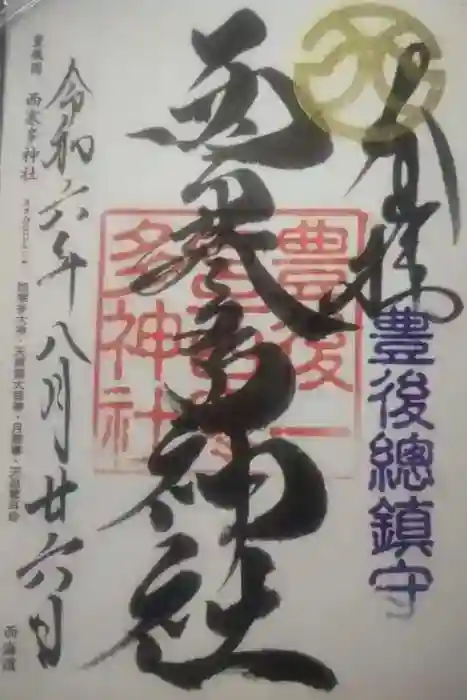 奉拝
豊後總鎮守
西寒多神社
豊後一
宮西寒
多神社
令和六年八月廿六日
豊後国 西寒多神社
西海道